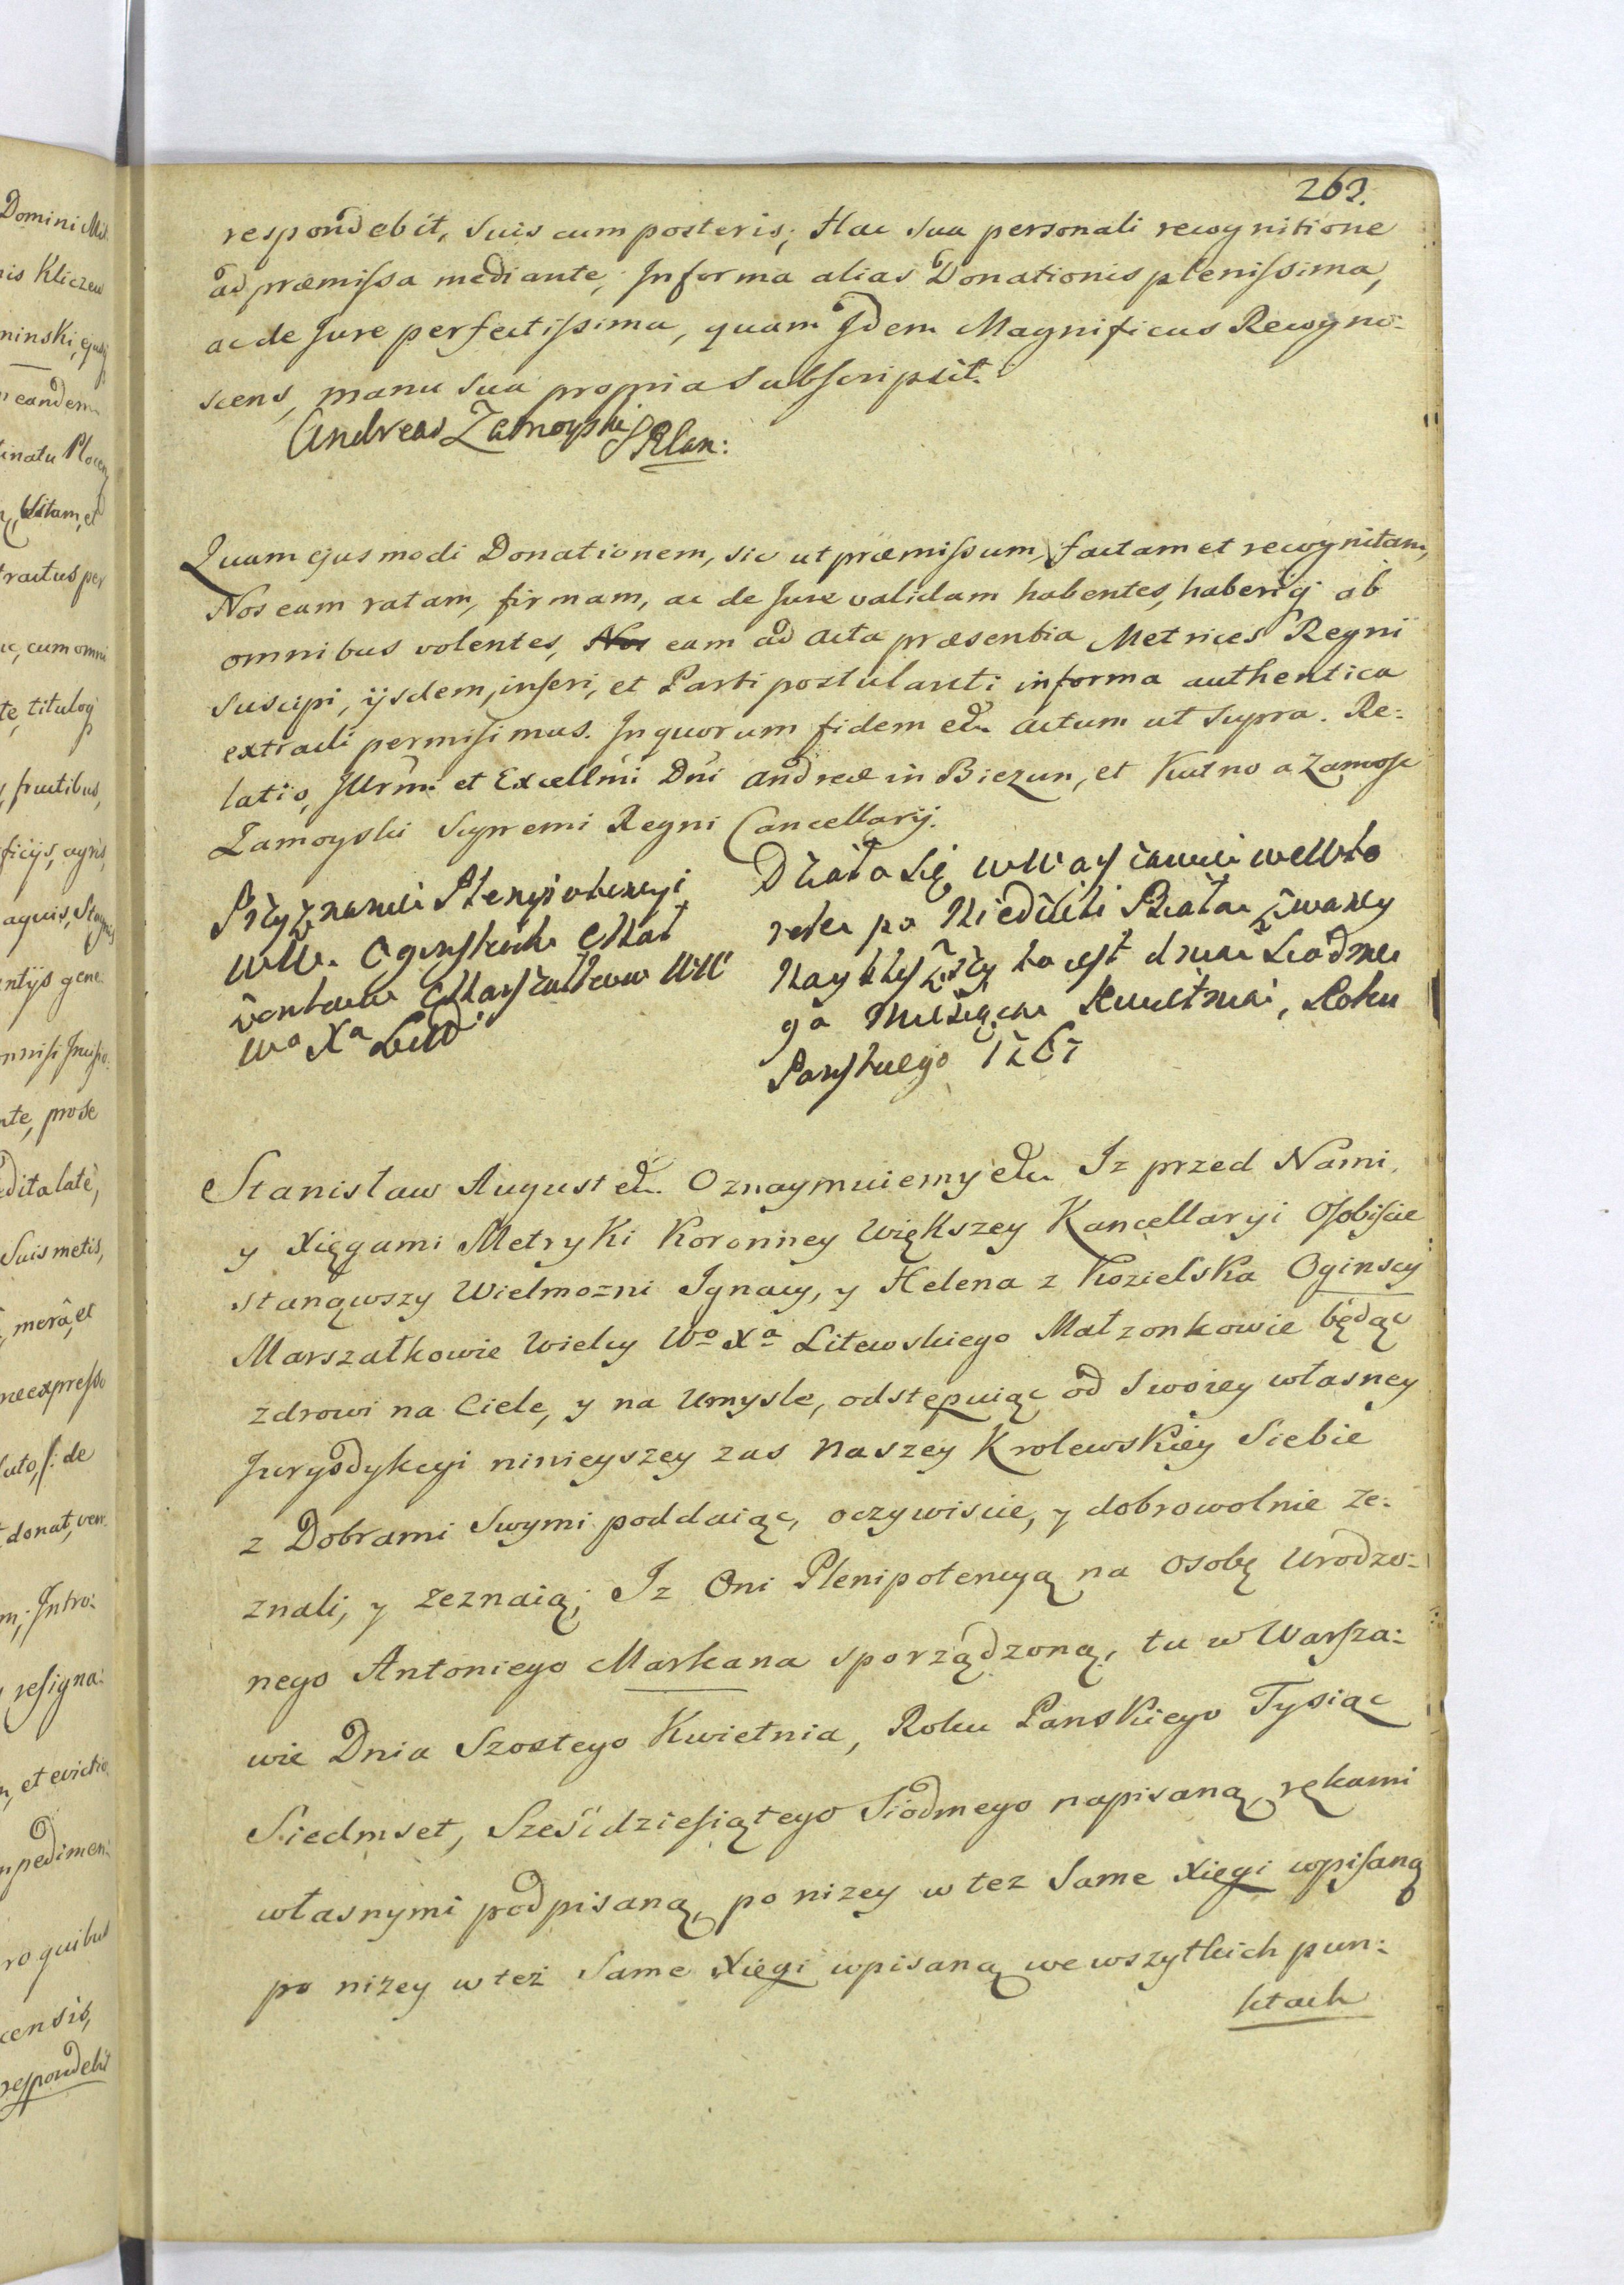 263.
respondebit, Suis cum posteris; Hac Sua personali recognitione
ad præmissa mediante, Informa alias Donationis plenissima,
ac de Jure perfectissima, quam Idem Magnificus Recogno-
scens, manu Sua propria Subscripsit.
Andreas Zamoyski SRCan:
Quam ejusmodi Donationem, sic ut præmissum, factam et recognitam,
Nos eam ratam, firmam, ac de Jure validam habentes, haberiq; ab
omnibus volentes, Nos eam ad Acta præsentia Metrices Regni
Suscipi, ijsdem, inseri, et Parti postulanti in forma authentica
extradi permisimus. In quorum fidem etc. Actum ut Supra. Re:
latio, Illrmi et Excellmi Dni Andreæ in Biezun, et Kutno a Zamosc
Zamoyski Supremi Regni Cancellarij.
Przyznanie Plenipotencyi
WW. Oginskich Mał
żonków Marszałków WW
Wo Xa Litt
Działo się w Warszawie we Wto
rek po Niedzieli Białey zwaney
Naybliższy to jest dnia Siodme
go Miesiąca Kwietnia, Roku
Pańskiego 1767
Stanisław August etc. Oznaymuiemy etc. Iz przed Nami,
y Xięgami Metryki Koronney Większey Kancellaryi Osobiście
stanąwszy Wielmozni Ignacy, y Helena z Kozielska Oginscy
Marszałkowie Wielcy Wo Xa Litewskiego Małzonkowie będąc
zdrowi na Ciele, y na Umysle, odstępuiąc od Swoiey własney
Jurysdykcyi ninieyszey zas Naszey Krolewskiey Siebie
z Dobrami Swymi poddaiąc, oczywiscie, y dobrowolnie ze:
znali, y zeznaią; Iz Oni Plenipotencyą na Osobę Urodzo:
nego Antoniego Markana sporządzoną, tu w Warsza:
wie Dnia Szostego Kwietnia, Roku Panskiego Tysiąc
Siedmset, Sześćdziesiątego Siodmego napisaną, rękami
własnymi podpisaną, po nizey w tez Same Xięgi wpisaną
po nizey w też Same Xięgi wpisaną we wszytkich pun:
ktach